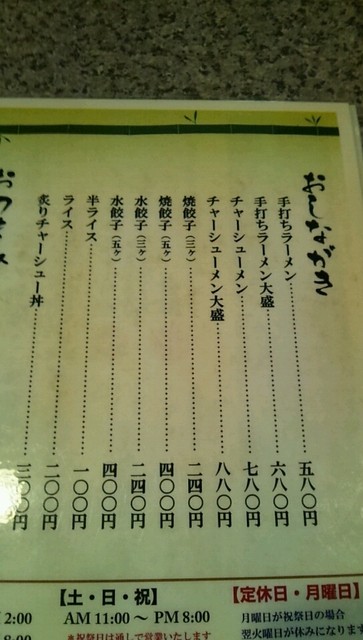 おしながき
手打ちラーメン 五八〇円
手打ちラーメン大盛 六八〇円
チャーシューメン 七八〇円
チャーシューメン大盛 八八〇円
焼餃子(三ヶ) 二四〇円
焼餃子(五ヶ) 四〇〇円
水餃子(三ヶ) 二四〇円
水餃子(五ヶ) 四〇〇円
半ライス 一〇〇円
ライス 二〇〇円
炙りチャーシュー丼 三〇〇円
【定休日・月曜日】
月曜日が祝祭日の場合
翌火曜日が休みになります
【土・日・祝】
AM 11:00 〜 PM 8:00
*祝祭日は通しで営業いたします
2:00
8:00